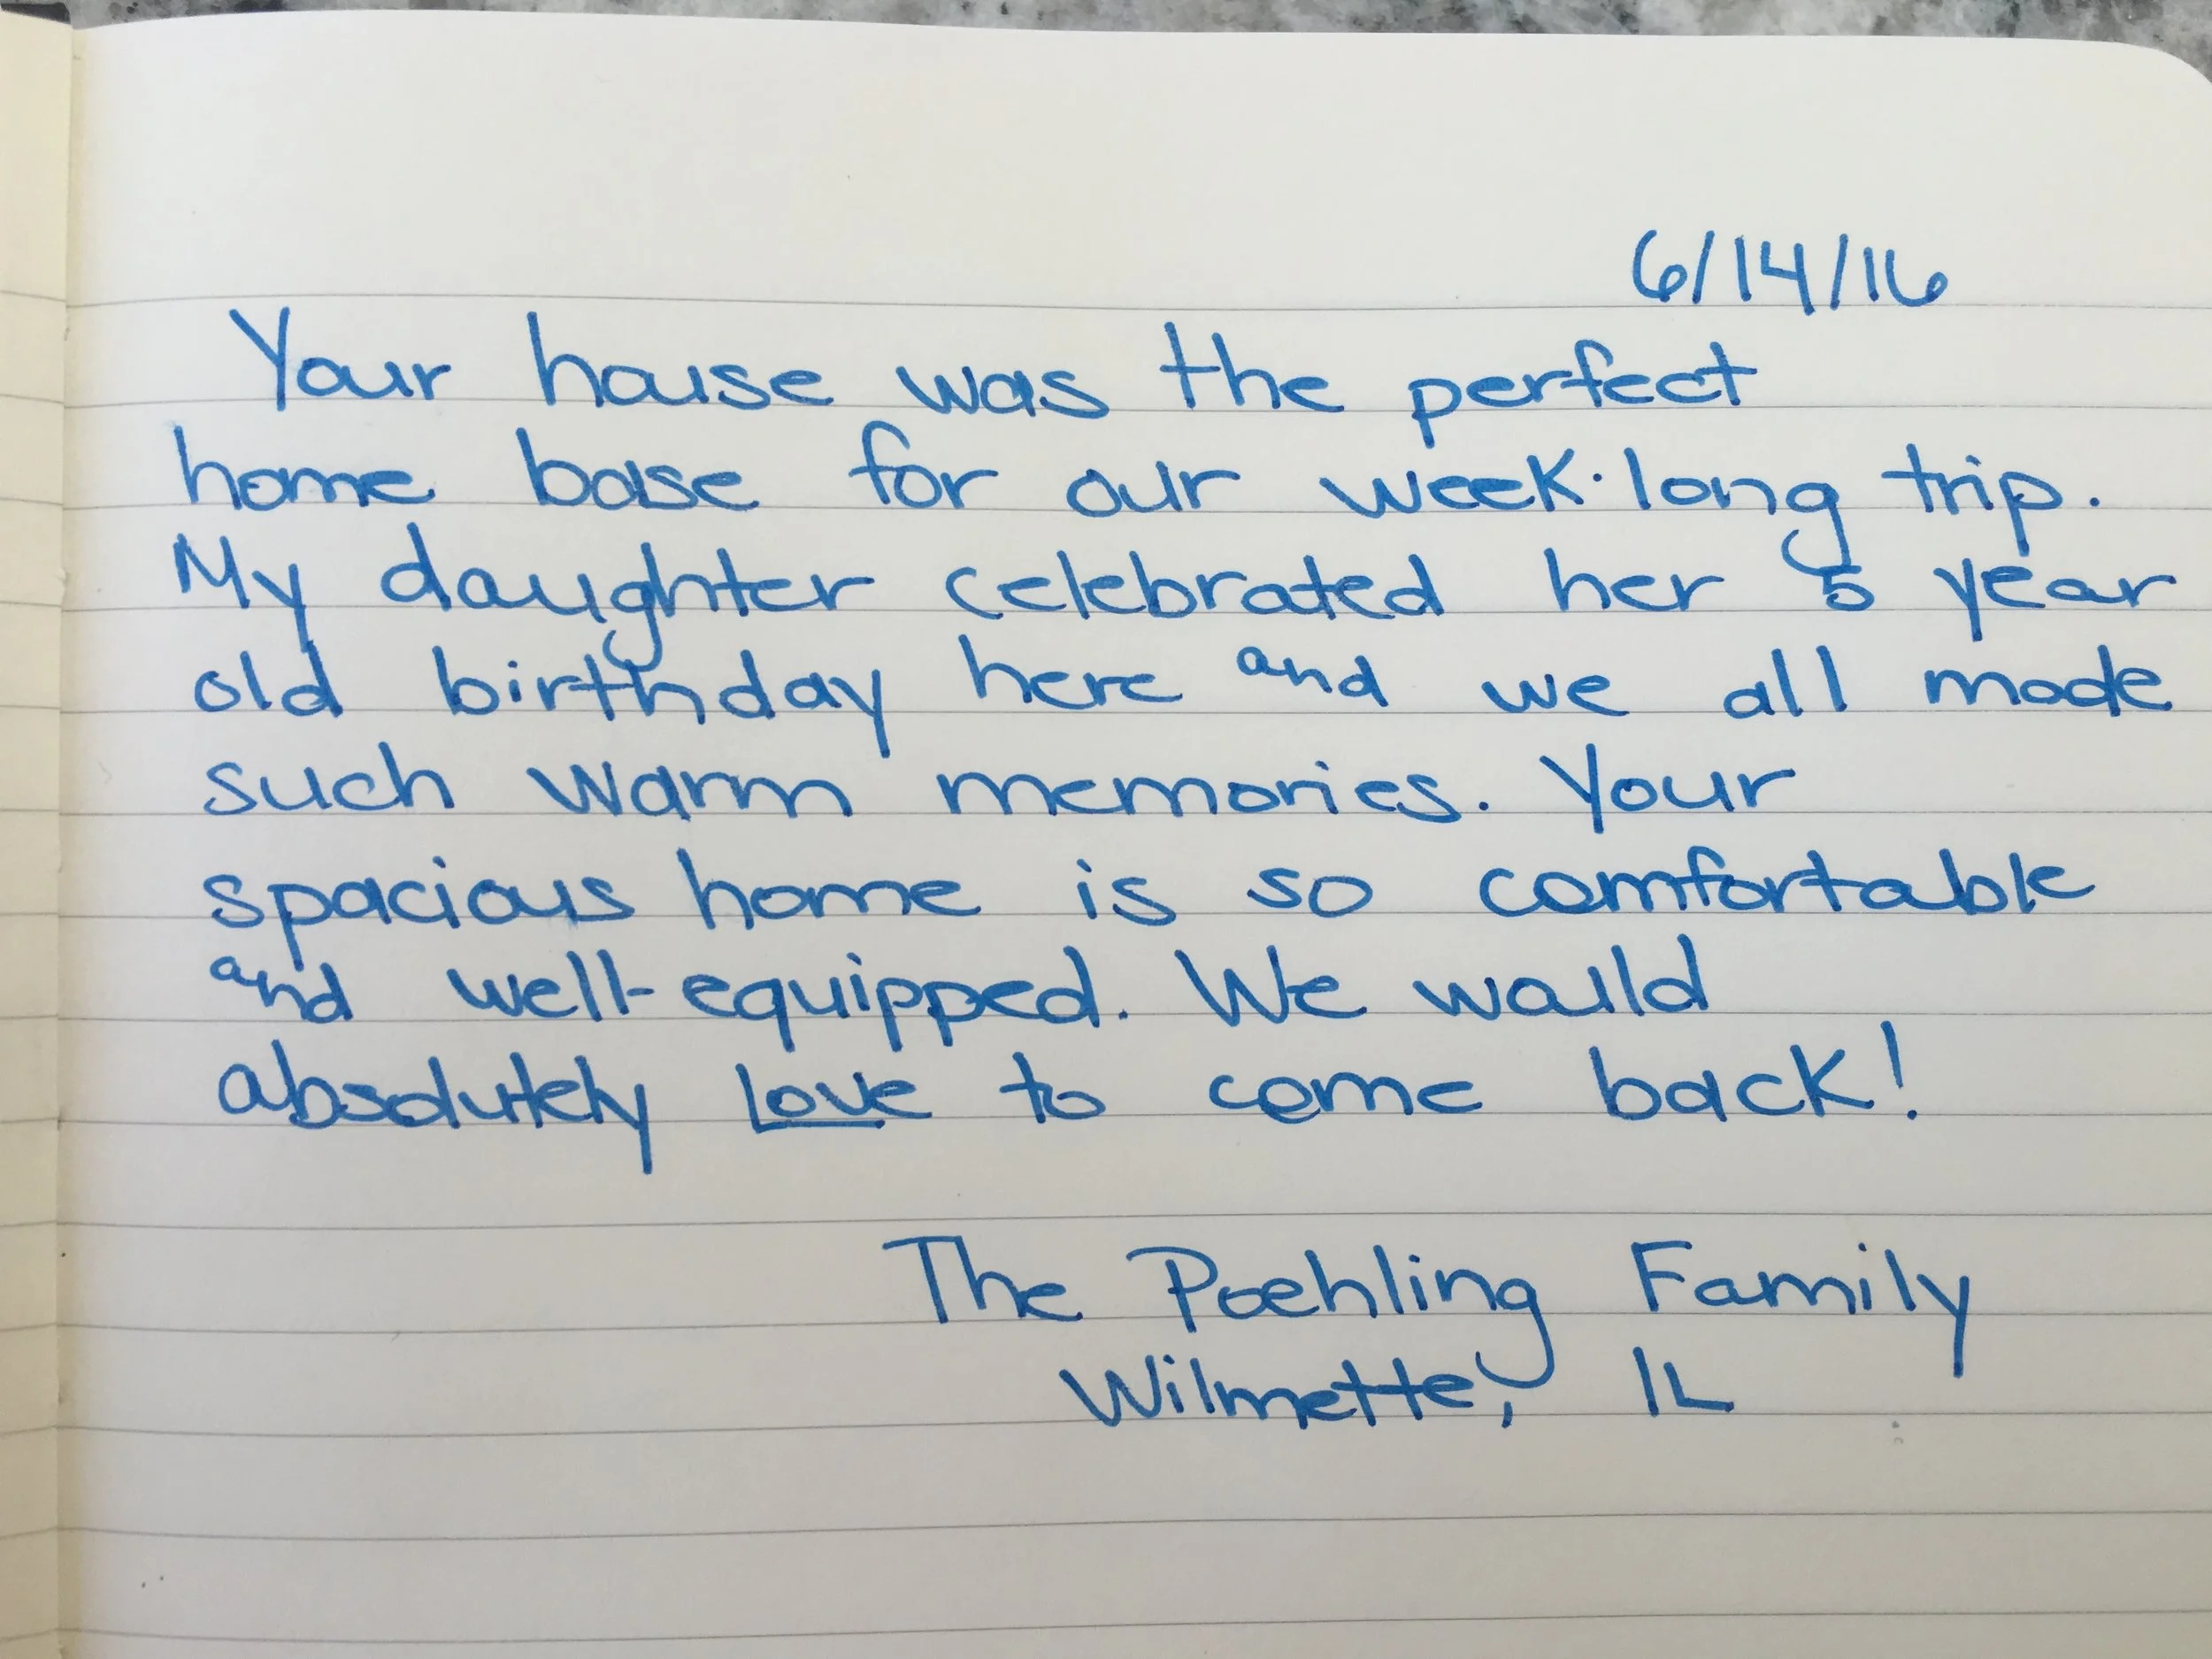 6/14/16
Your house was the perfect
home base for our week-long trip.
My daughter celebrated her 5 year
old birthday here and we all made
such warm memories. Your
spacious home is so comfortable
and well-equipped. We would
absolutely love to come back!
The Poehling Family
Wilmette, IL